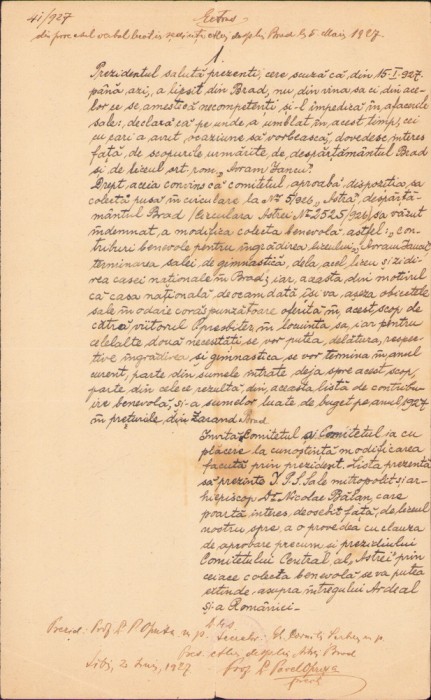 41/927 Extras
din procesul verbal luat în ședința desp. Brad la 5 Maiu 1927.
1.
Prezidentul salută prezenți, cere scuză că din 15-I-927
până azi, a lipsit din Brad, nu din vina sa ci din acel-
lor ce se amestică necompetenți și-l împedecă în afacerile
sale; declară că pe unde a umblat în acest timp, cei
cu cari a avut ocaziune să vorbească, dovedesc interes
față de scopurile urmărite de despărțământul Brad
și de liceul ort. rom. „Avram Iancu".
Drept aceia convins că comitetul aprobă dispoziția, sa
colectă pusă în circulare la № 5/926 „Astra", despărță-
mântul Brad (circulara Astrei № 2525/926) s'a văzut
îndemnat, a modifica colecta benevolă astfel: „con-
tribuiri benevole pentru îngrădirea liceului „Avram Iancu"
terminarea salei de gimnastică, dela acel liceu și zidi-
rea casei naționale în Brad; iar aceasta din motivul
că casa națională deocamdată își va așeza obiectele
sale în odaie corăspunzătoare oferită în acest scop de
cătră viitorul Opresbiter în locuința sa, iar pentru
celelalte două necesități se vor putea delătura, respec-
tive îngrădirea și gimnastica se vor termina în anul
curent, parte din sumele intrate deja spre acest scop,
parte din cele ce rezultă din această listă de contribu-
ire benevolă, și-a sumelor luate de buget pe anul 1927
în prețurile din Zarand Brad
Invită Comitetul și Comitetul ia cu
plăcere la cunoștință modificarea
făcută prin prezident. Lista prezentă
să prezinte I.P.S. Sale mitropolit și ar-
hiepiscop Dr. Nicolae Bălan, care
poartă interes deosebit față de liceul
nostru spre a o provedea cu clauza
de aprobare precum și prezidiului
Comitetului Central al „Astrei" prin
ceease colecta benevolă se va putea
estinde asupra întregului Ardeal
și a României.-
Prezid: Prof. Dr P. Oprișa m.p. Secretar: m.p.
Brad
Sibi, 1927 Prof. Dr Pavel Oprișa